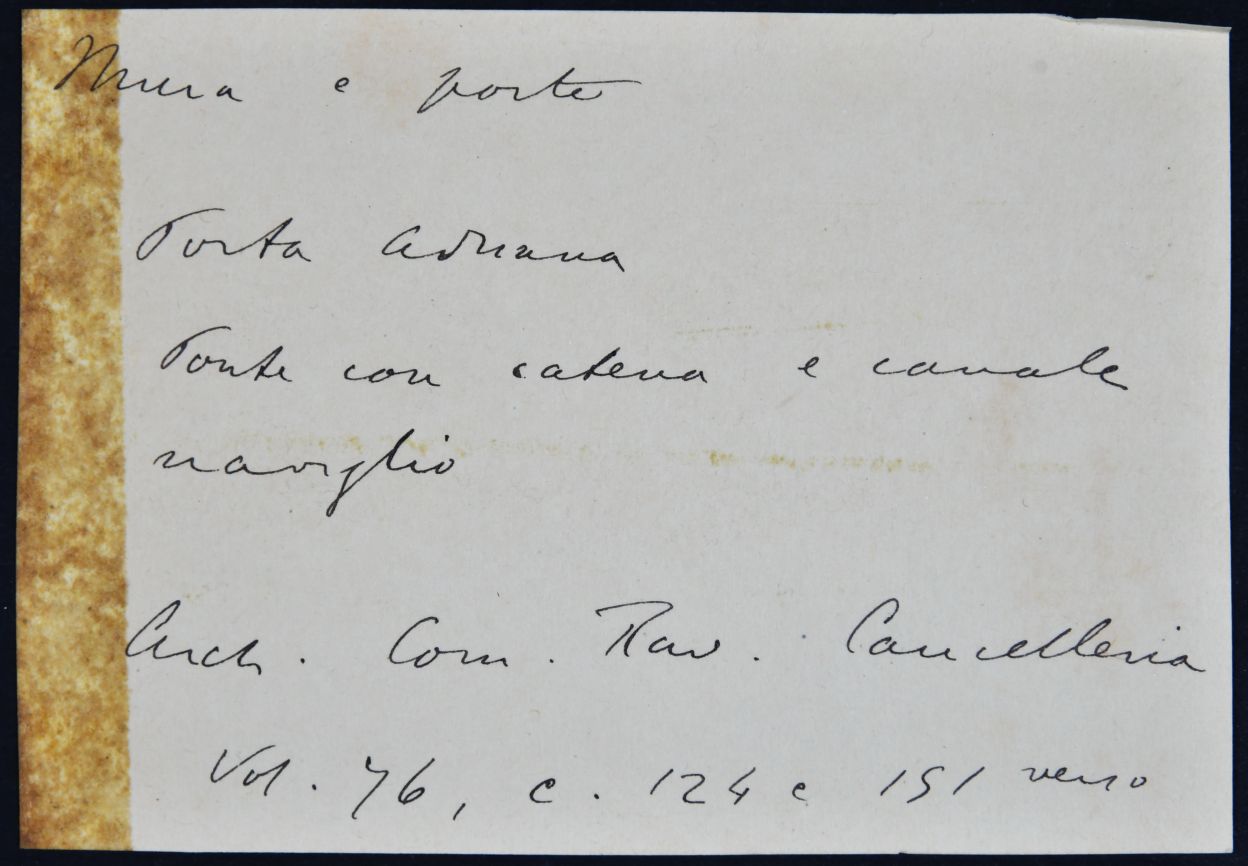 Mura e porte
Porta Adriana
Ponte con catena e canale
naviglio
Arch. Com. Rav. Cancelleria
Vol. 76, c. 124 e 151 verso